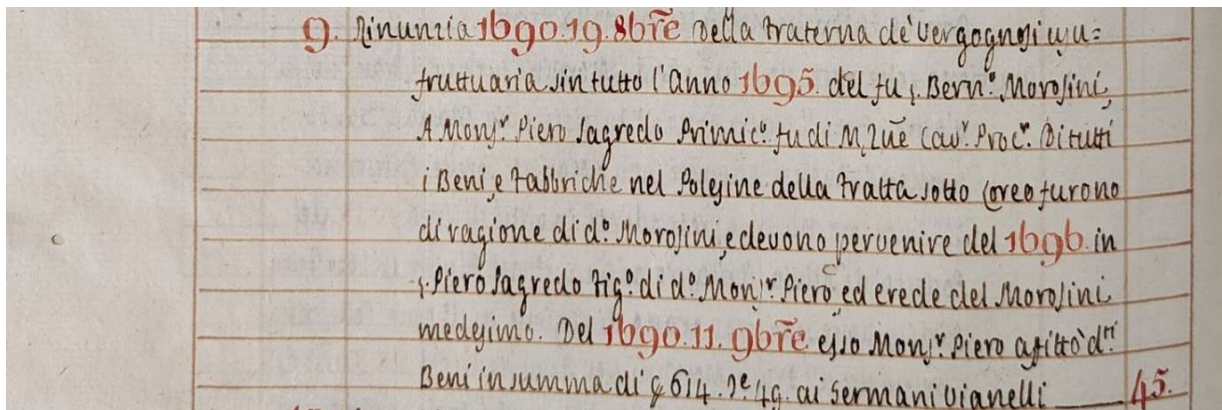 9. Rinunzia 1690. 19. 8bre della Fraterna de' Vergognosi usu=
fruttuaria sin tutto l'anno 1695. del fu s. Bern.º Morosini,
A Mons.r Piero Sagredo Primic.º fu di M. Zuē Cav.r Proc.r Di tutti
i Beni, e Fabbriche nel Polesine della Fratta sotto Loreo furono
di ragione di d.º Morosini, e devono pervenire del 1696. in
s. Piero Sagredo Fig.º di d.º Mons.r Piero ed erede del Morosini
medesimo. Del 1690. 11. 9bre esso Mons.r Piero afittò d.ti
Beni in summa di 614. 49. ai Germani Vianelli ___ 45.